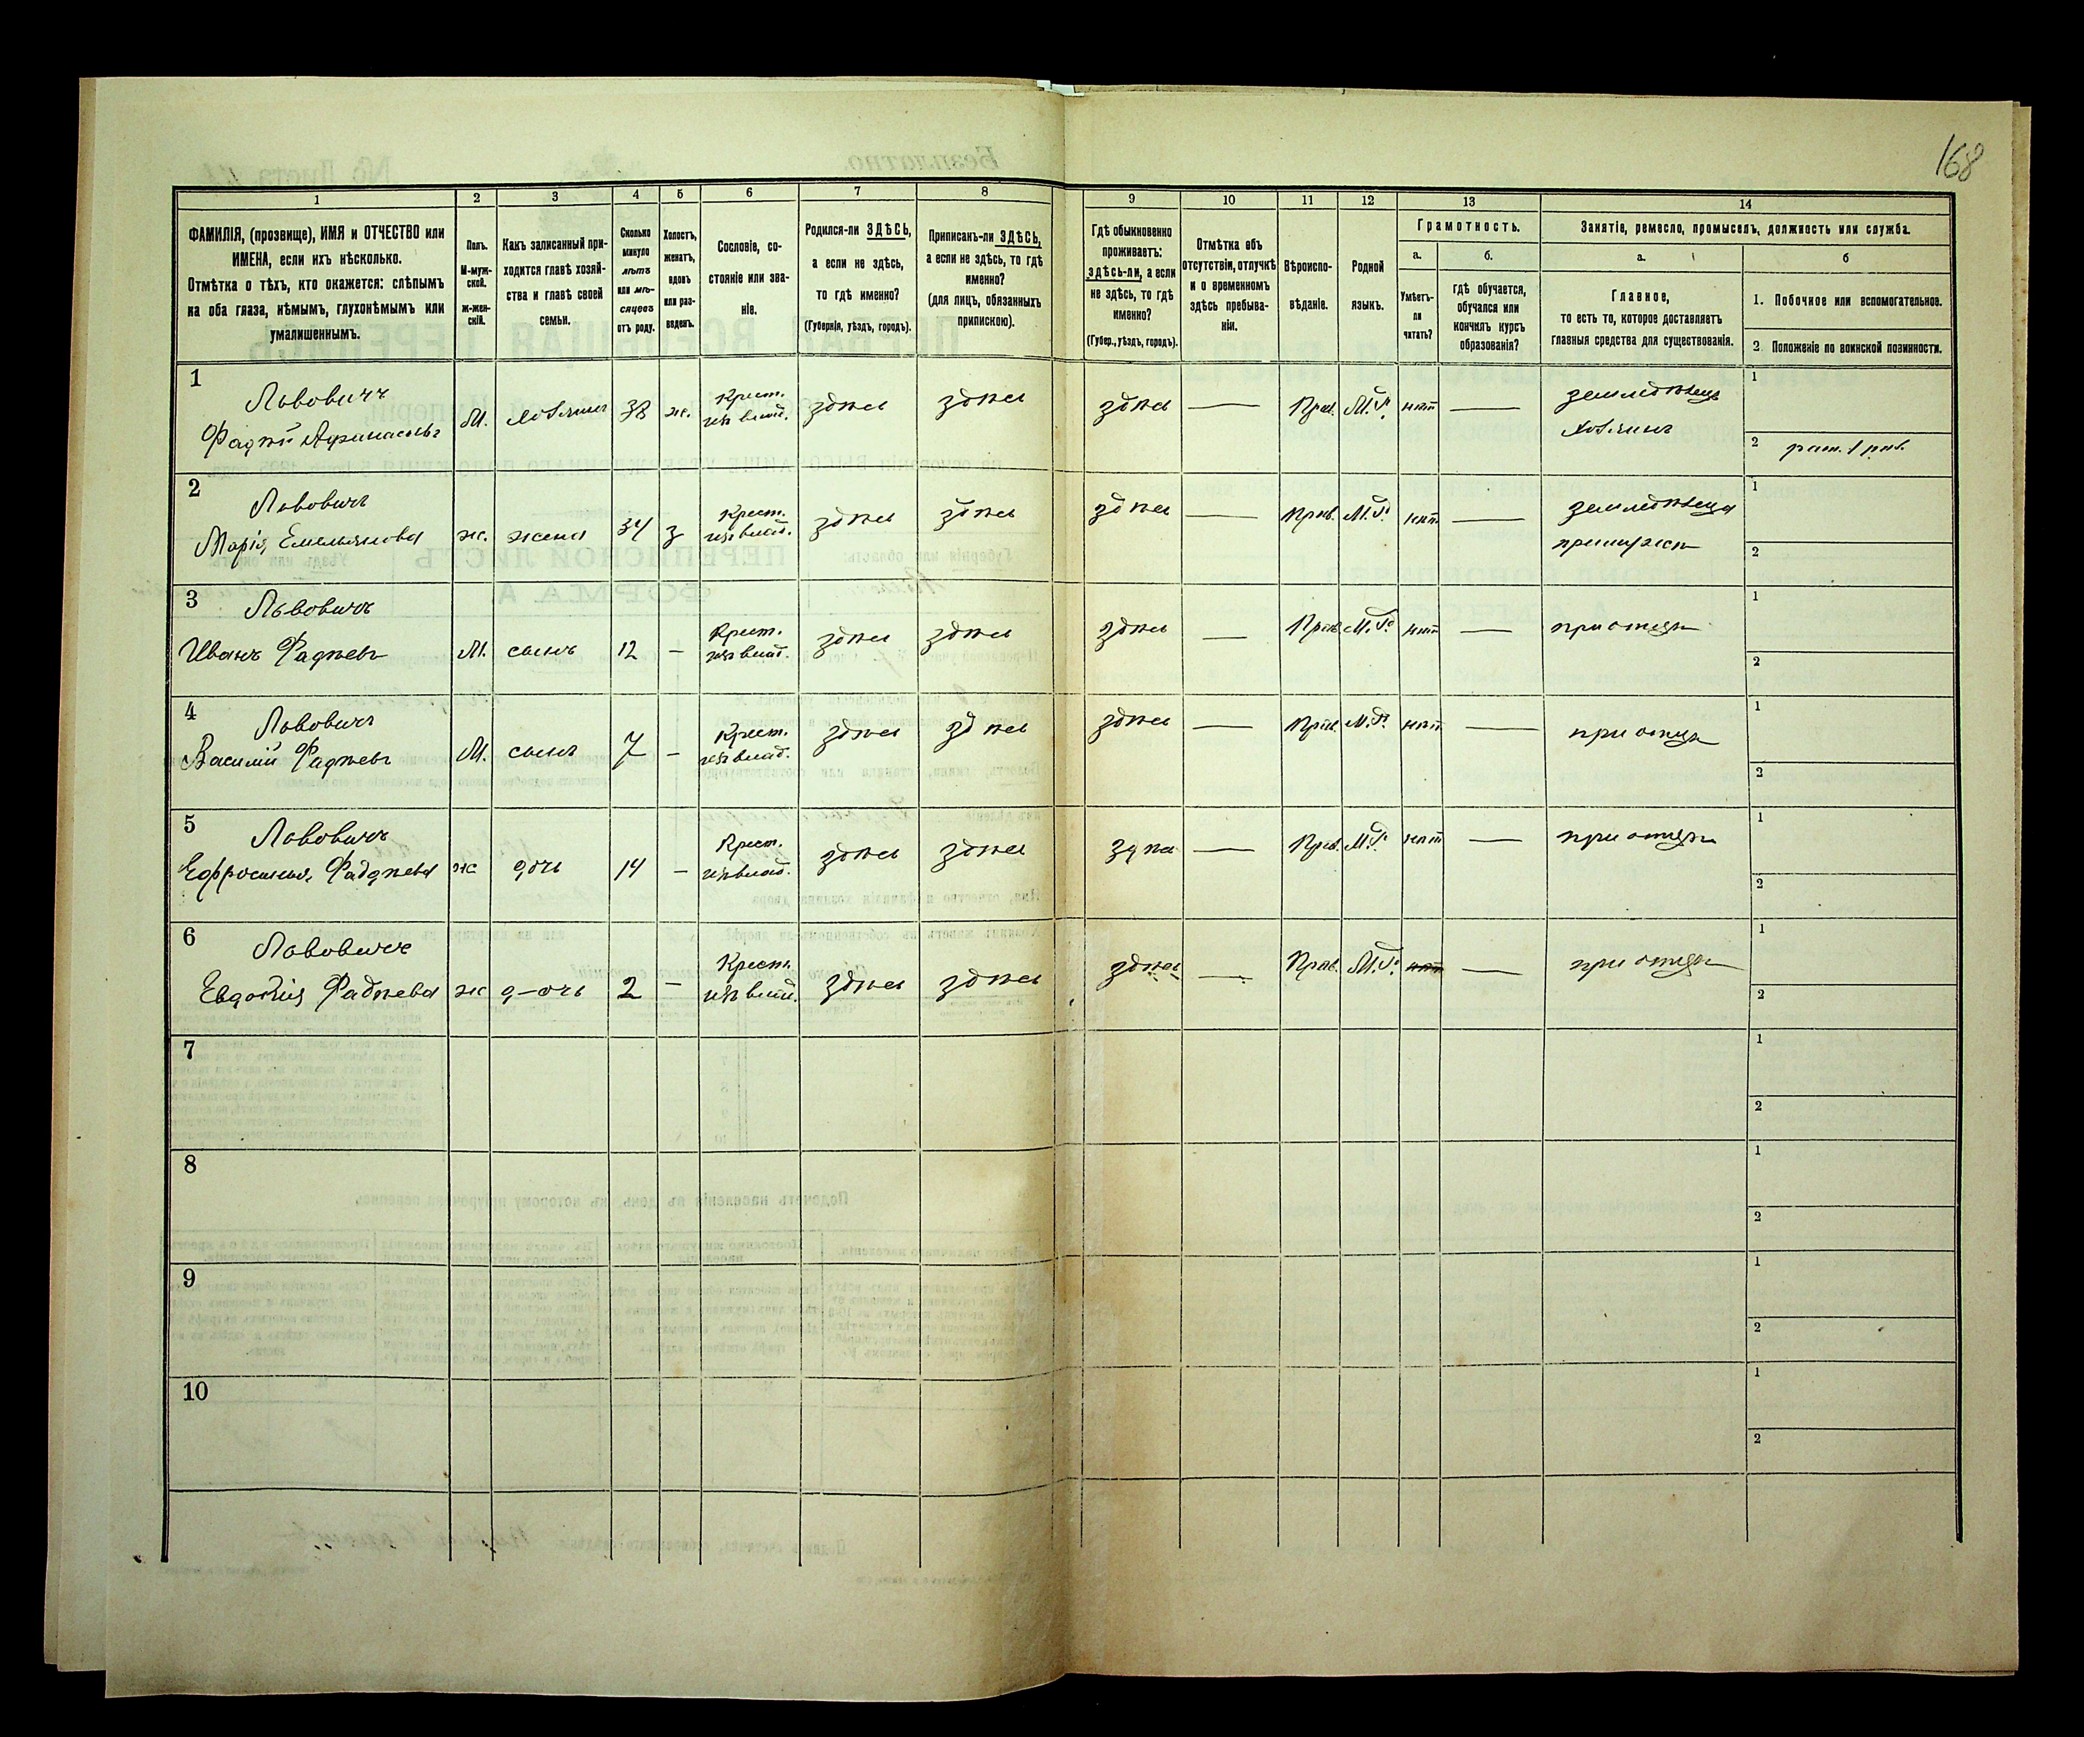 168
1 2 3 4 5 6 7 8 9 10 11 12 13 14
ФАМИЛІЯ, (прозвище), ИМЯ и ОТЧЕСТВО или
ИМЕНА, если ихъ нѣсколько.
Отмѣтка о тѣхъ, кто окажется: слѣпымъ
на оба глаза, нѣмымъ, глухонѣмымъ или
умалишеннымъ.
Полъ.
М-муж-
ской.
ж-жен-
скій.
Какъ записанный при-
ходится главѣ хозяй-
ства и главѣ своей
семьи.
Сколько
минуло
лѣтъ
или мѣ-
сяцевъ
отъ роду.
Холостъ,
женатъ,
вдовъ
или раз-
веденъ.
Сословіе, со-
стояніе или зва-
ніе.
Родился-ли ЗДѢСЬ,
а если не здѣсь,
то гдѣ именно?
(Губернія, уѣздъ, городъ).
Приписанъ-ли ЗДѢСЬ,
а если не здѣсь, то гдѣ
именно?
(для лицъ, обязанныхъ
припискою).
Гдѣ обыкновенно
проживаетъ:
здѣсь-ли, а если
не здѣсь, то гдѣ
именно?
(Губер., уѣздъ, городъ).
Отмѣтка объ
отсутствіи, отлучкѣ
и о временномъ
здѣсь пребыва-
ніи.
Вѣроиспо-
вѣданіе.
Родной
языкъ.
Грамотность.
а.
Умѣетъ-
ли
читать?
б.
гдѣ обучается,
обучался или
кончилъ курсъ
образованія?
Занятіе, ремесло, промыселъ, должность или служба.
а.
Главное,
то есть то, которое доставляетъ
главныя средства для существованія.
б
1. Побочное или вспомогательное.
2 Положеніе по воинской повинности.
1 Львовичъ
Фадѣй Афанасьевъ М. хозяинъ 38 ж. Крест. изъ влад. здѣсь здѣсь здѣсь — Прав. М.Р. нѣт — земледѣлецъ хозяинъ 1
2
2 Львовичъ
Марія Емельянова ж. жена 34 з Крест. изъ влад. здѣсь здѣсь здѣсь — Прав. М.Р. нѣт — земледѣлица при мужѣ 1
2
3 Львовичъ
Иванъ Фадѣевъ М. сынъ 12 — Крест. изъ влад. здѣсь здѣсь здѣсь — Прав. М.Р. нѣт — при отцѣ 1
2
4 Львовичъ
Василій Фадѣевъ М. сынъ 7 — Крест. изъ влад. здѣсь здѣсь здѣсь — Прав. М.Р. нѣт — при отцѣ 1
2
5 Львовичъ
Ефросинья Фаддѣева ж дочь 14 — Крест. изъ влад. здѣсь здѣсь здѣсь — Прав. М.Р. нѣт — при отцѣ 1
2
6 Львовичъ
Евдокія Фадѣева ж д-очь 2 — Крест. изъ влад. здѣсь здѣсь здѣсь — Прав. М.Р. нѣт — при отцѣ 1
2
7 1
2
8 1
2
9 1
2
10 1
2